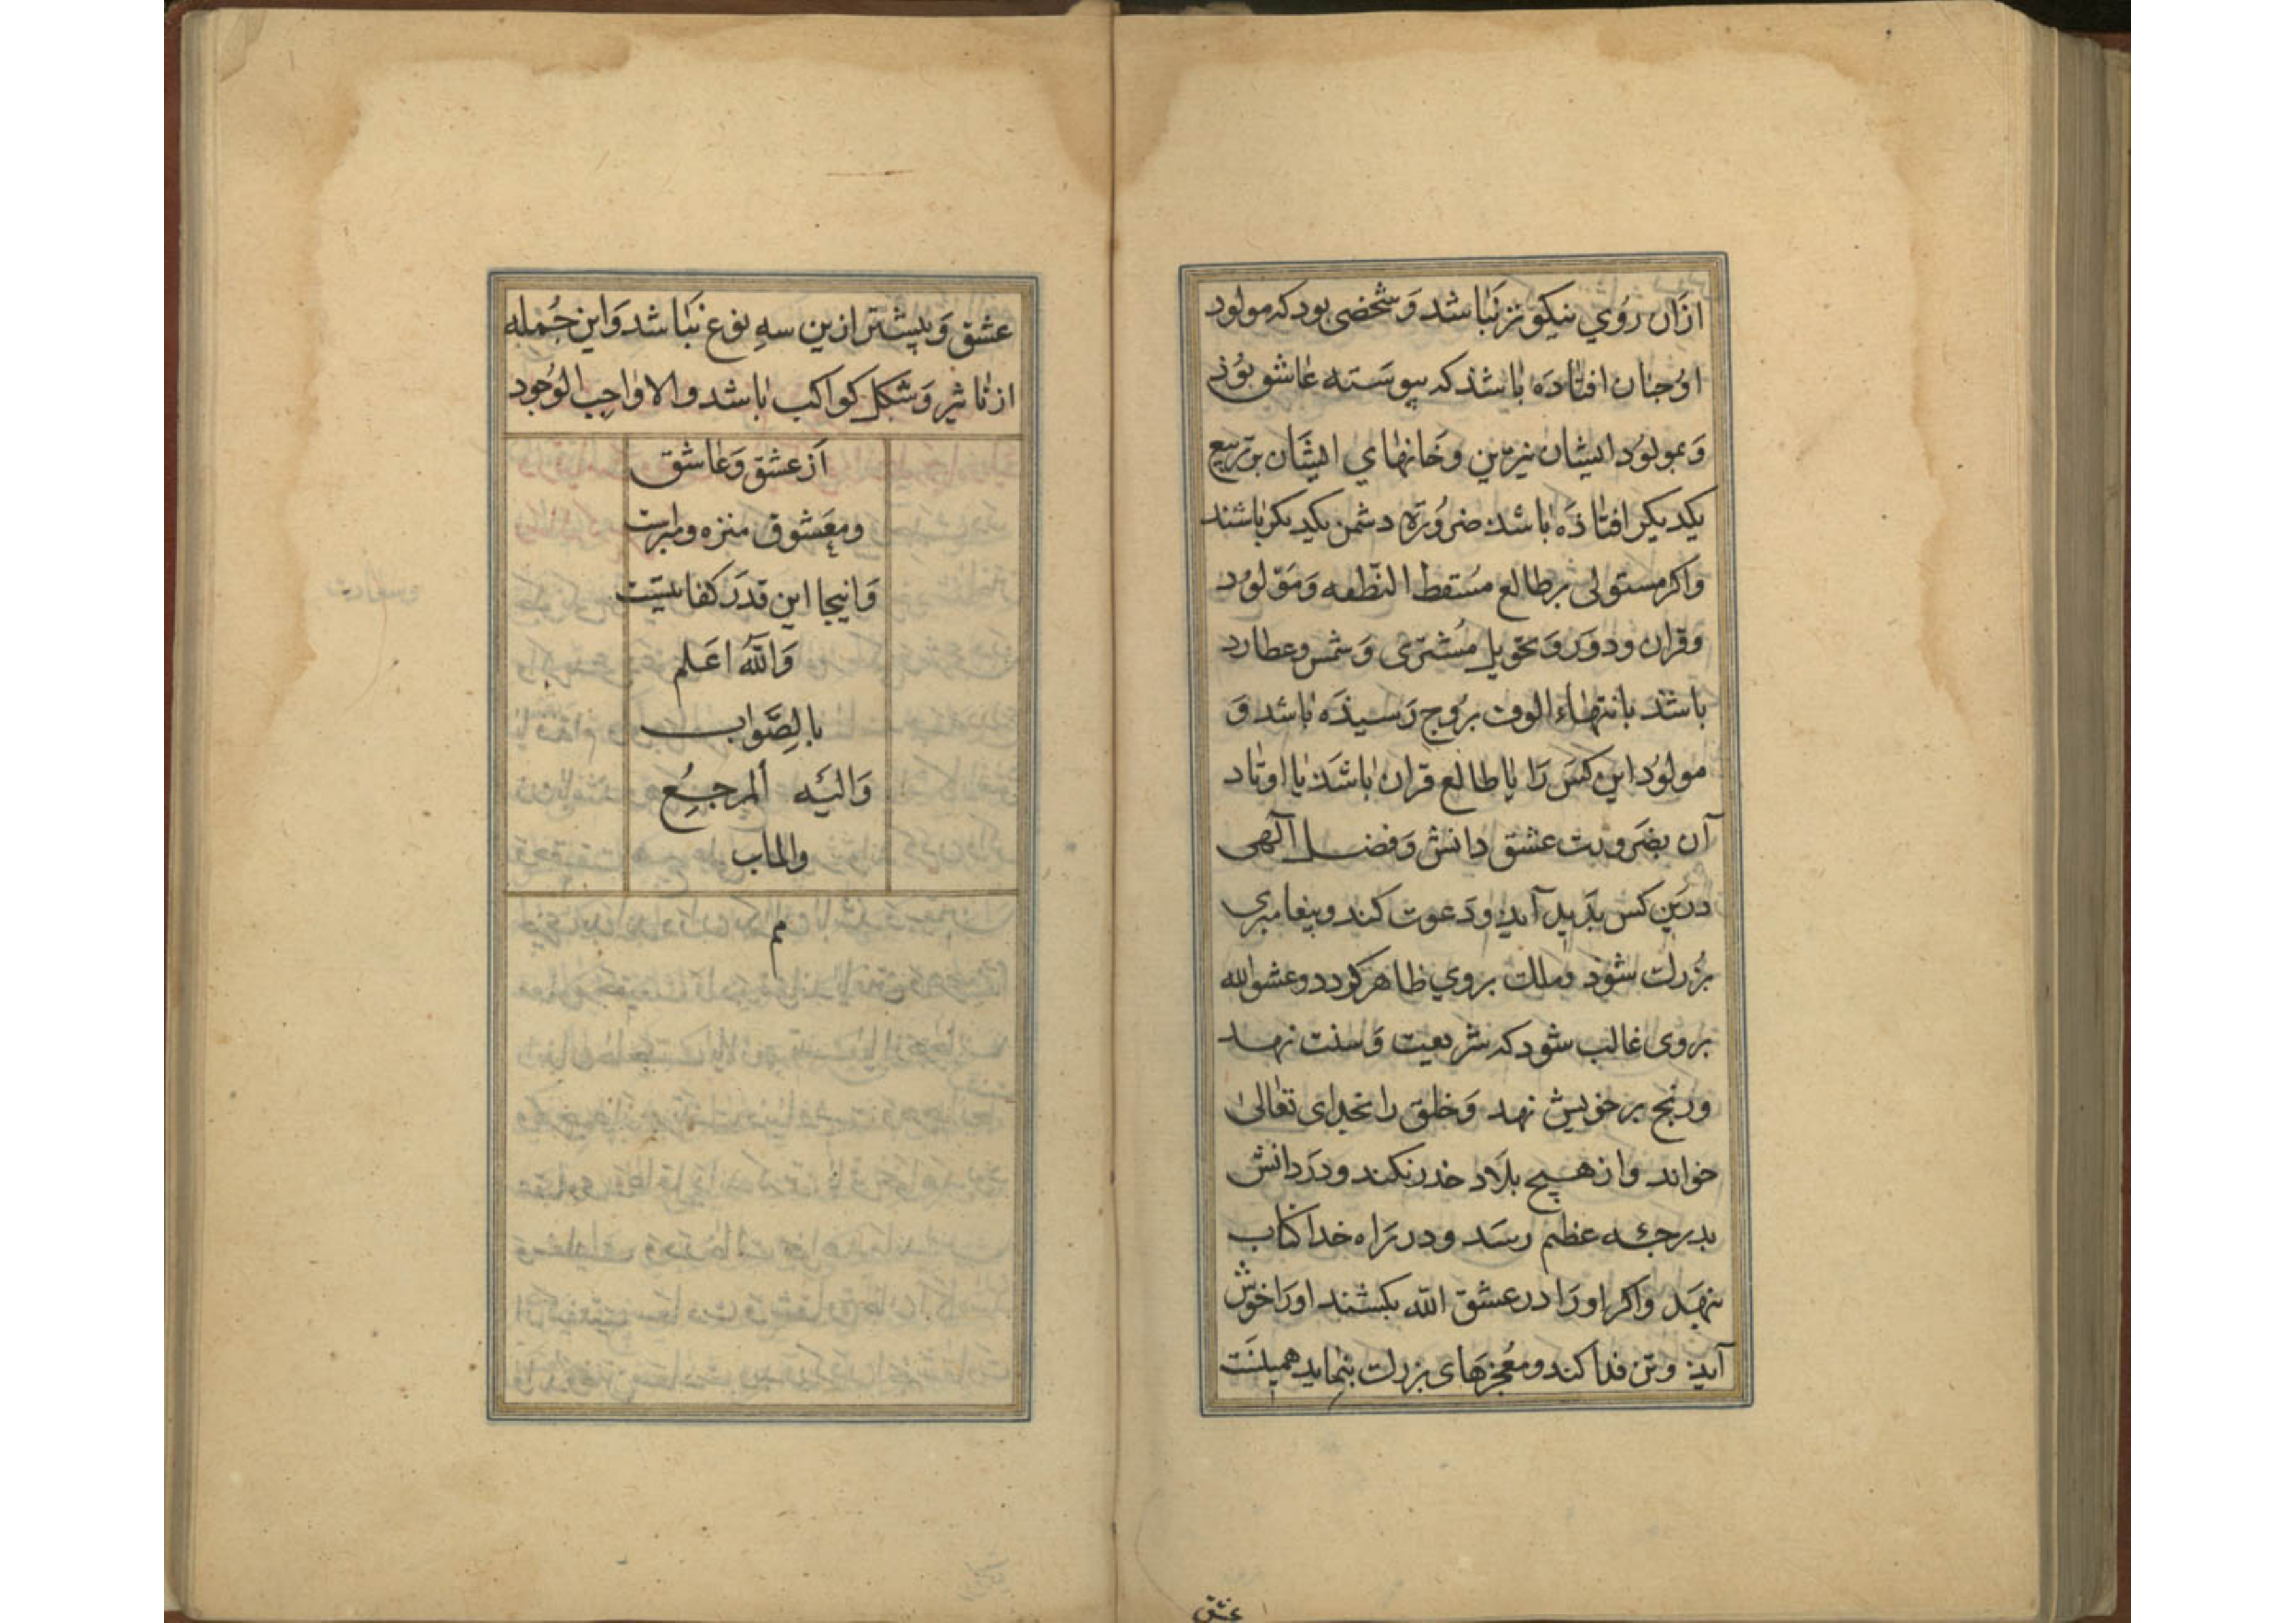 ازان روي نيكوتر نباشد و شخصى بود كه مولود
او جنان افتاده باشد كه پيوسته عاشق بوذ
و بمولود ايشان نيرين و خانهاي ايشان بر تربيع
يكديكر افتاذه باشد ضرورة دشمن يكديكر باشند
واكر مستولى بر طالع مسقط النطفه و مولود
وقران ودور و تحويل مشترى و شمس وعطارد
باشد بانتهاء الوقت بروج رسيذه باشد و
مولود اين كس را يا طالع قران باشد يا اوتاد
آن بضرورت عشق دانش و فضل آلهى
درين كس پديد آيد و دعوت كند و پيغامبرى
بزرك شوذ وملك بروي ظاهر كردد وعشق الله
بروى غالب شود كه شريعت و سنت نهد
ورنج بر خويش نهد و خلق را بخداى تعالى
خواند واز هيچ بلا حذر نكند و در دانش
بدرجه عظيم رسد و در راه خدا كتاب
نهد واكر او را در عشق الله بكشند او را خوش
آيد و تن فدا كند و معجزهاى بزرك بنمايد همينست
عشق
عشق و بيشتر ازين سه نوع نباشد و اين جمله
از تاثير و شكل كواكب باشد والا واجب الوجود
از عشق و عاشق
ومعشوق منزه ومبراست
و اينجا اين قدر كفايتست
والله اعلم
بالصواب
واليه المرجع
والماب
مم